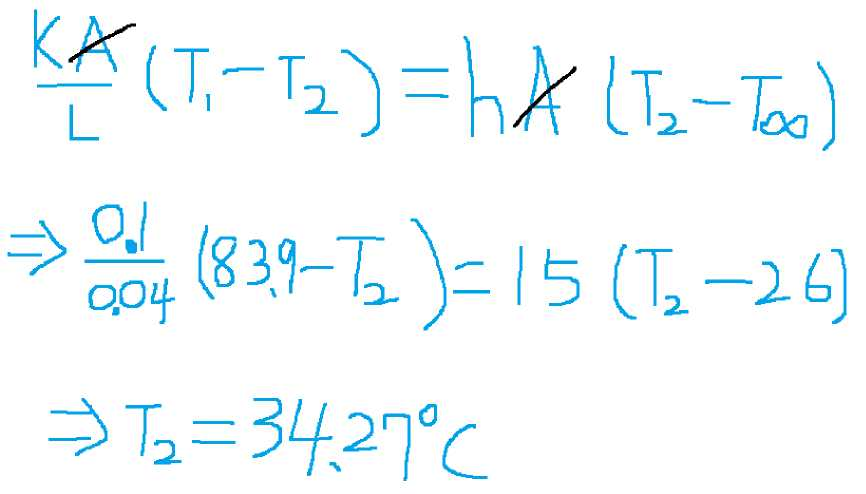 KA/L (T₁ − T₂) = hA (T₂ − T∞)
⇒ 0.1/0.04 (83.9 − T₂) = 15 (T₂ − 26)
⇒ T₂ = 34.27°C